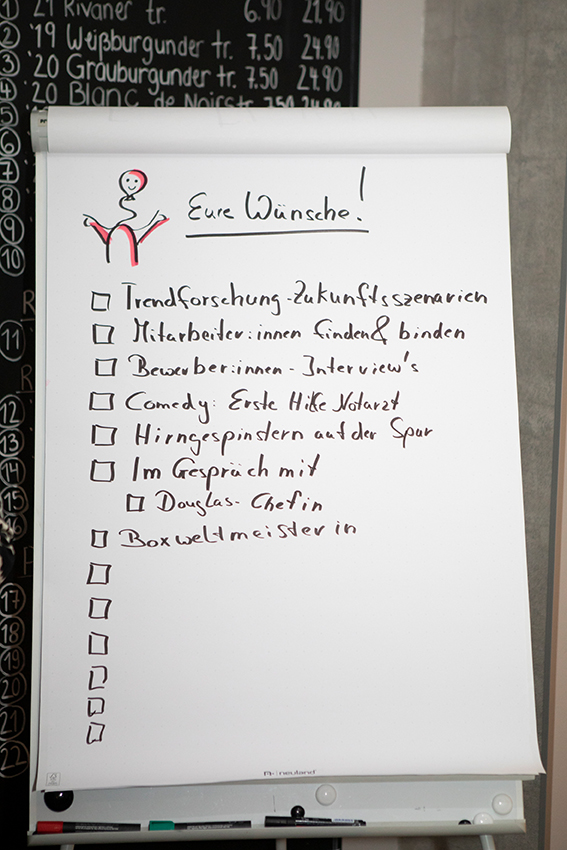 ① 21 Rivaner tr. 6.90 21.90
② '19 Weißburgunder tr. 7.50 24.90
③ '20 Grauburgunder tr. 7.50 24.90
④ '20 Blanc de Noirs tr. 7.50 24.90
⑤
⑥
⑦
⑧
⑨
⑩
⑪
⑫
⑬
⑭
⑮
⑯
⑰
⑱
⑲
⑳
㉑
㉒
Eure Wünsche!
Trendforschung - Zukunftsszenarien
Mitarbeiter:innen finden & binden
Bewerber:innen - Interview's
Comedy: Erste Hilfe Notarzt
Hirngespinstern auf der Spur
Im Gespräch mit
Douglas- Chefin
Boxweltmeisterin
neuland